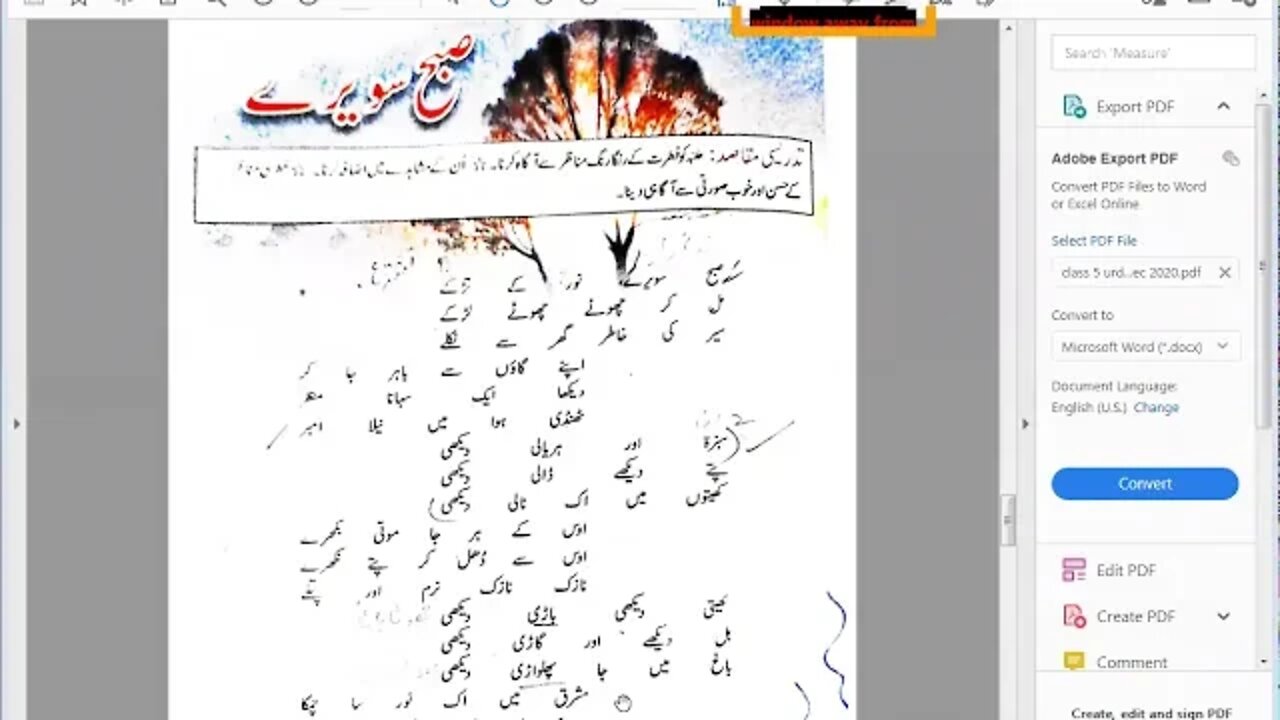 window away from
صبح سویرے
تدریسی مقاصد: طلبہ کو فطرت کے رنگارنگ مناظر سے آگاہ کرنا۔ اُن کے مشاہدے میں اضافہ کرنا۔
کے حسن اور خوب صورتی سے آگاہی دینا۔
صبح سویرے نور کے تڑکے
مل کر چھوٹے چھوٹے لڑکے
سیر کی خاطر گھر سے نکلے
اپنے گاؤں سے باہر جا کر
دیکھا ایک سہانا منظر
ٹھنڈی ہوا میں نیلا امبر
سبزہ اور ہریالی دیکھی
پتے دیکھے ڈالی دیکھی
کھیتوں میں اک نالی دیکھی
اوس کے ہر جا موتی بکھرے
اوس سے دُھل کر پتے نکھرے
نازک نازک نرم اور پتلے
کھیتی دیکھی باڑی دیکھی
بل دیکھے اور گاڑی دیکھی
باغ میں جا پھلواڑی دیکھی
مشرق میں اک نور سا چمکا
Search 'Measure'
Export PDF
Adobe Export PDF
Convert PDF Files to Word
or Excel Online
Select PDF File
class 5 urd...ec 2020.pdf
Convert to
Microsoft Word (*.docx)
Document Language:
English (U.S.) Change
Convert
Edit PDF
Create PDF
Comment
Create, edit and sign PDF